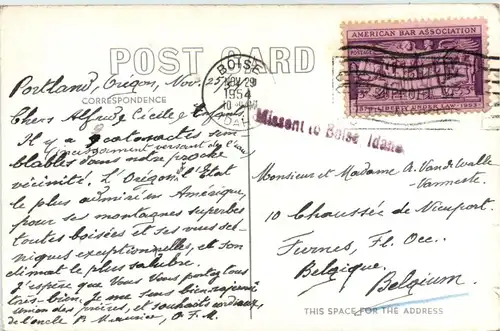 POST CARD
AMERICAN BAR ASSOCIATION
POSTAGE
LIBERTY UNDER LAW 1953
BOISE
NOV 29
1954
10
IDA.
Missent to Boise Idaho
Portland, Orégon, Nov. 25/
CORRESPONDENCE
Chers Alfred, Cécile et Enfants.
Il y a 2 cataractes sem
(jaillissement versant de l'eau)
blables dans notre proche
vicinité. L'Orégon, l'État
le plus admiré en Amérique,
pour ses montagnes superbes
toutes boisées et ses vues scé-
niques exceptionnelles, et son
climat le plus salubre.
J'espère que Vous Vous portez tous
très-bien. Je me sens bien rajeuni
Union des prières, et souhaits cordiaux,
de l'oncle P. O.F.M.
Monsieur et Madame A. Van de Walle
Vanneste.
10 Chaussée de Nieuport.
Furnes, Fl. Occ.
Belgique.
Belgium.
THIS SPACE FOR THE ADDRESS